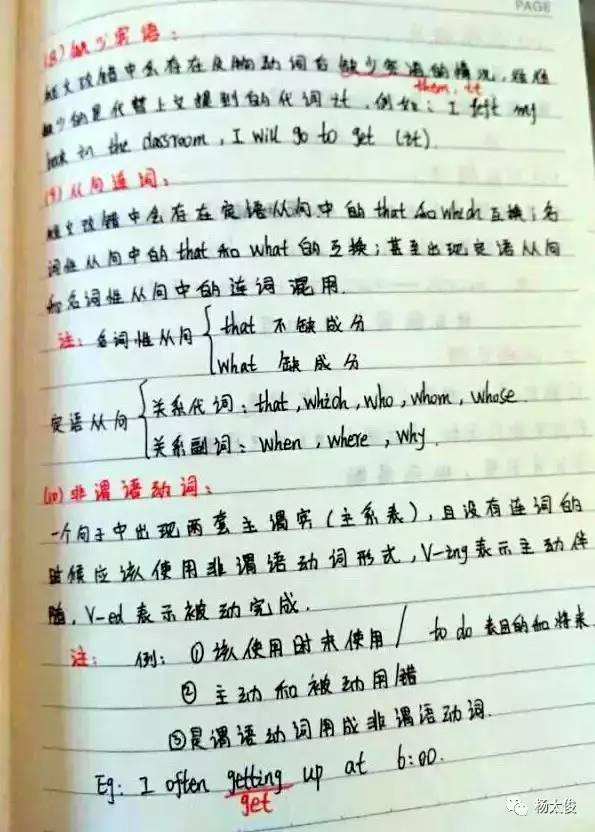 PAGE
(8) 缺少宾语：
短文改错中会存在及物动词后缺少宾语的情况，往往
them, it
缺少的是代替上文提到的代词it，例如：I left my
book in the classroom, I will go to get (it).
(9) 从句连词：
短文改错中会存在定语从句中的that和which互换；名
词性从句中的that和what的互换；甚至出现定语从句
和名词性从句中的连词混用.
注：名词性从句 { that 不缺成分
what 缺成分
定语从句 { 关系代词：that, which, who, whom, whose.
关系副词：when, where, why.
(10) 非谓语动词：
一个句子中出现两套主谓宾(主系表)，且没有连词的
时候应该使用非谓语动词形式，V-ing表示主动伴
随，V-ed表示被动完成.
注：例：①该使用时未使用 / to do 表目的和将来
②主动和被动用错
③是谓语动词用成非谓语动词.
Eg: I often getting up at 6:00.
get
杨太俊